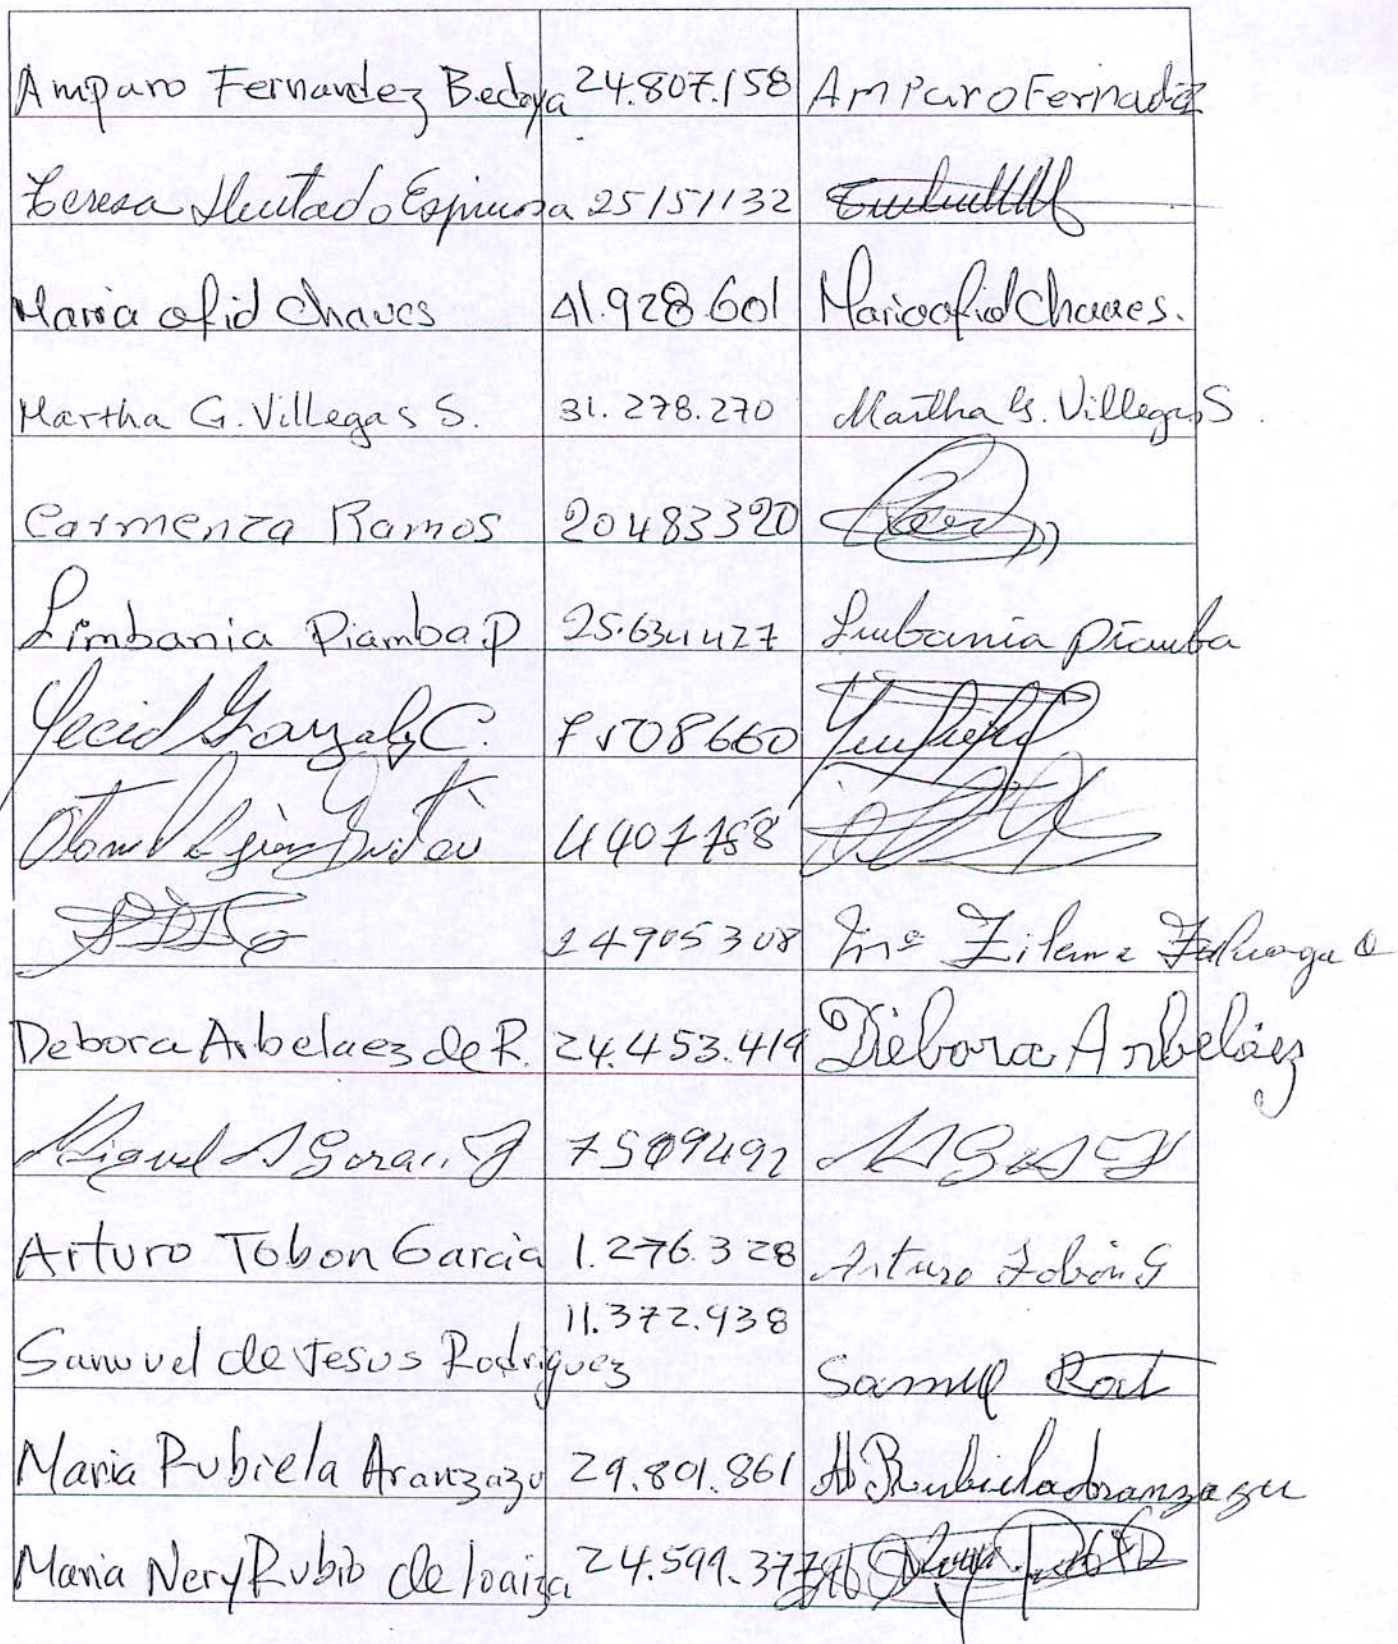 Amparo Fernandez Bedoya 24.807.158 AmParo Fernadez
Teresa Hurtado Espinosa 25151132
Maria ofid Chaves 41.928.601 Maria ofid Chaves.
Martha G. Villegas S. 31.278.270 Martha G. Villegas S.
Carmenza Ramos 20483320
Limbania Piamba P 25.634427 Limbania Piamba
Yecid Gonzalez C. 7508660
4407758
24905308 Ma Zilema Zuluaga O
Debora Arbelaez de R. 24.453.419 Debora Arbeláez
Miguel A 7509492
Arturo Tobon Garcia 1.276.328 Arturo Tobón G
11.372.938
Samuel de Jesus Rodriguez Samuel
Maria Rubiela Aranzazu 29.801.861 M Rubiela Aranzazu
Maria Nery Rubio de loaiza 24.599.377